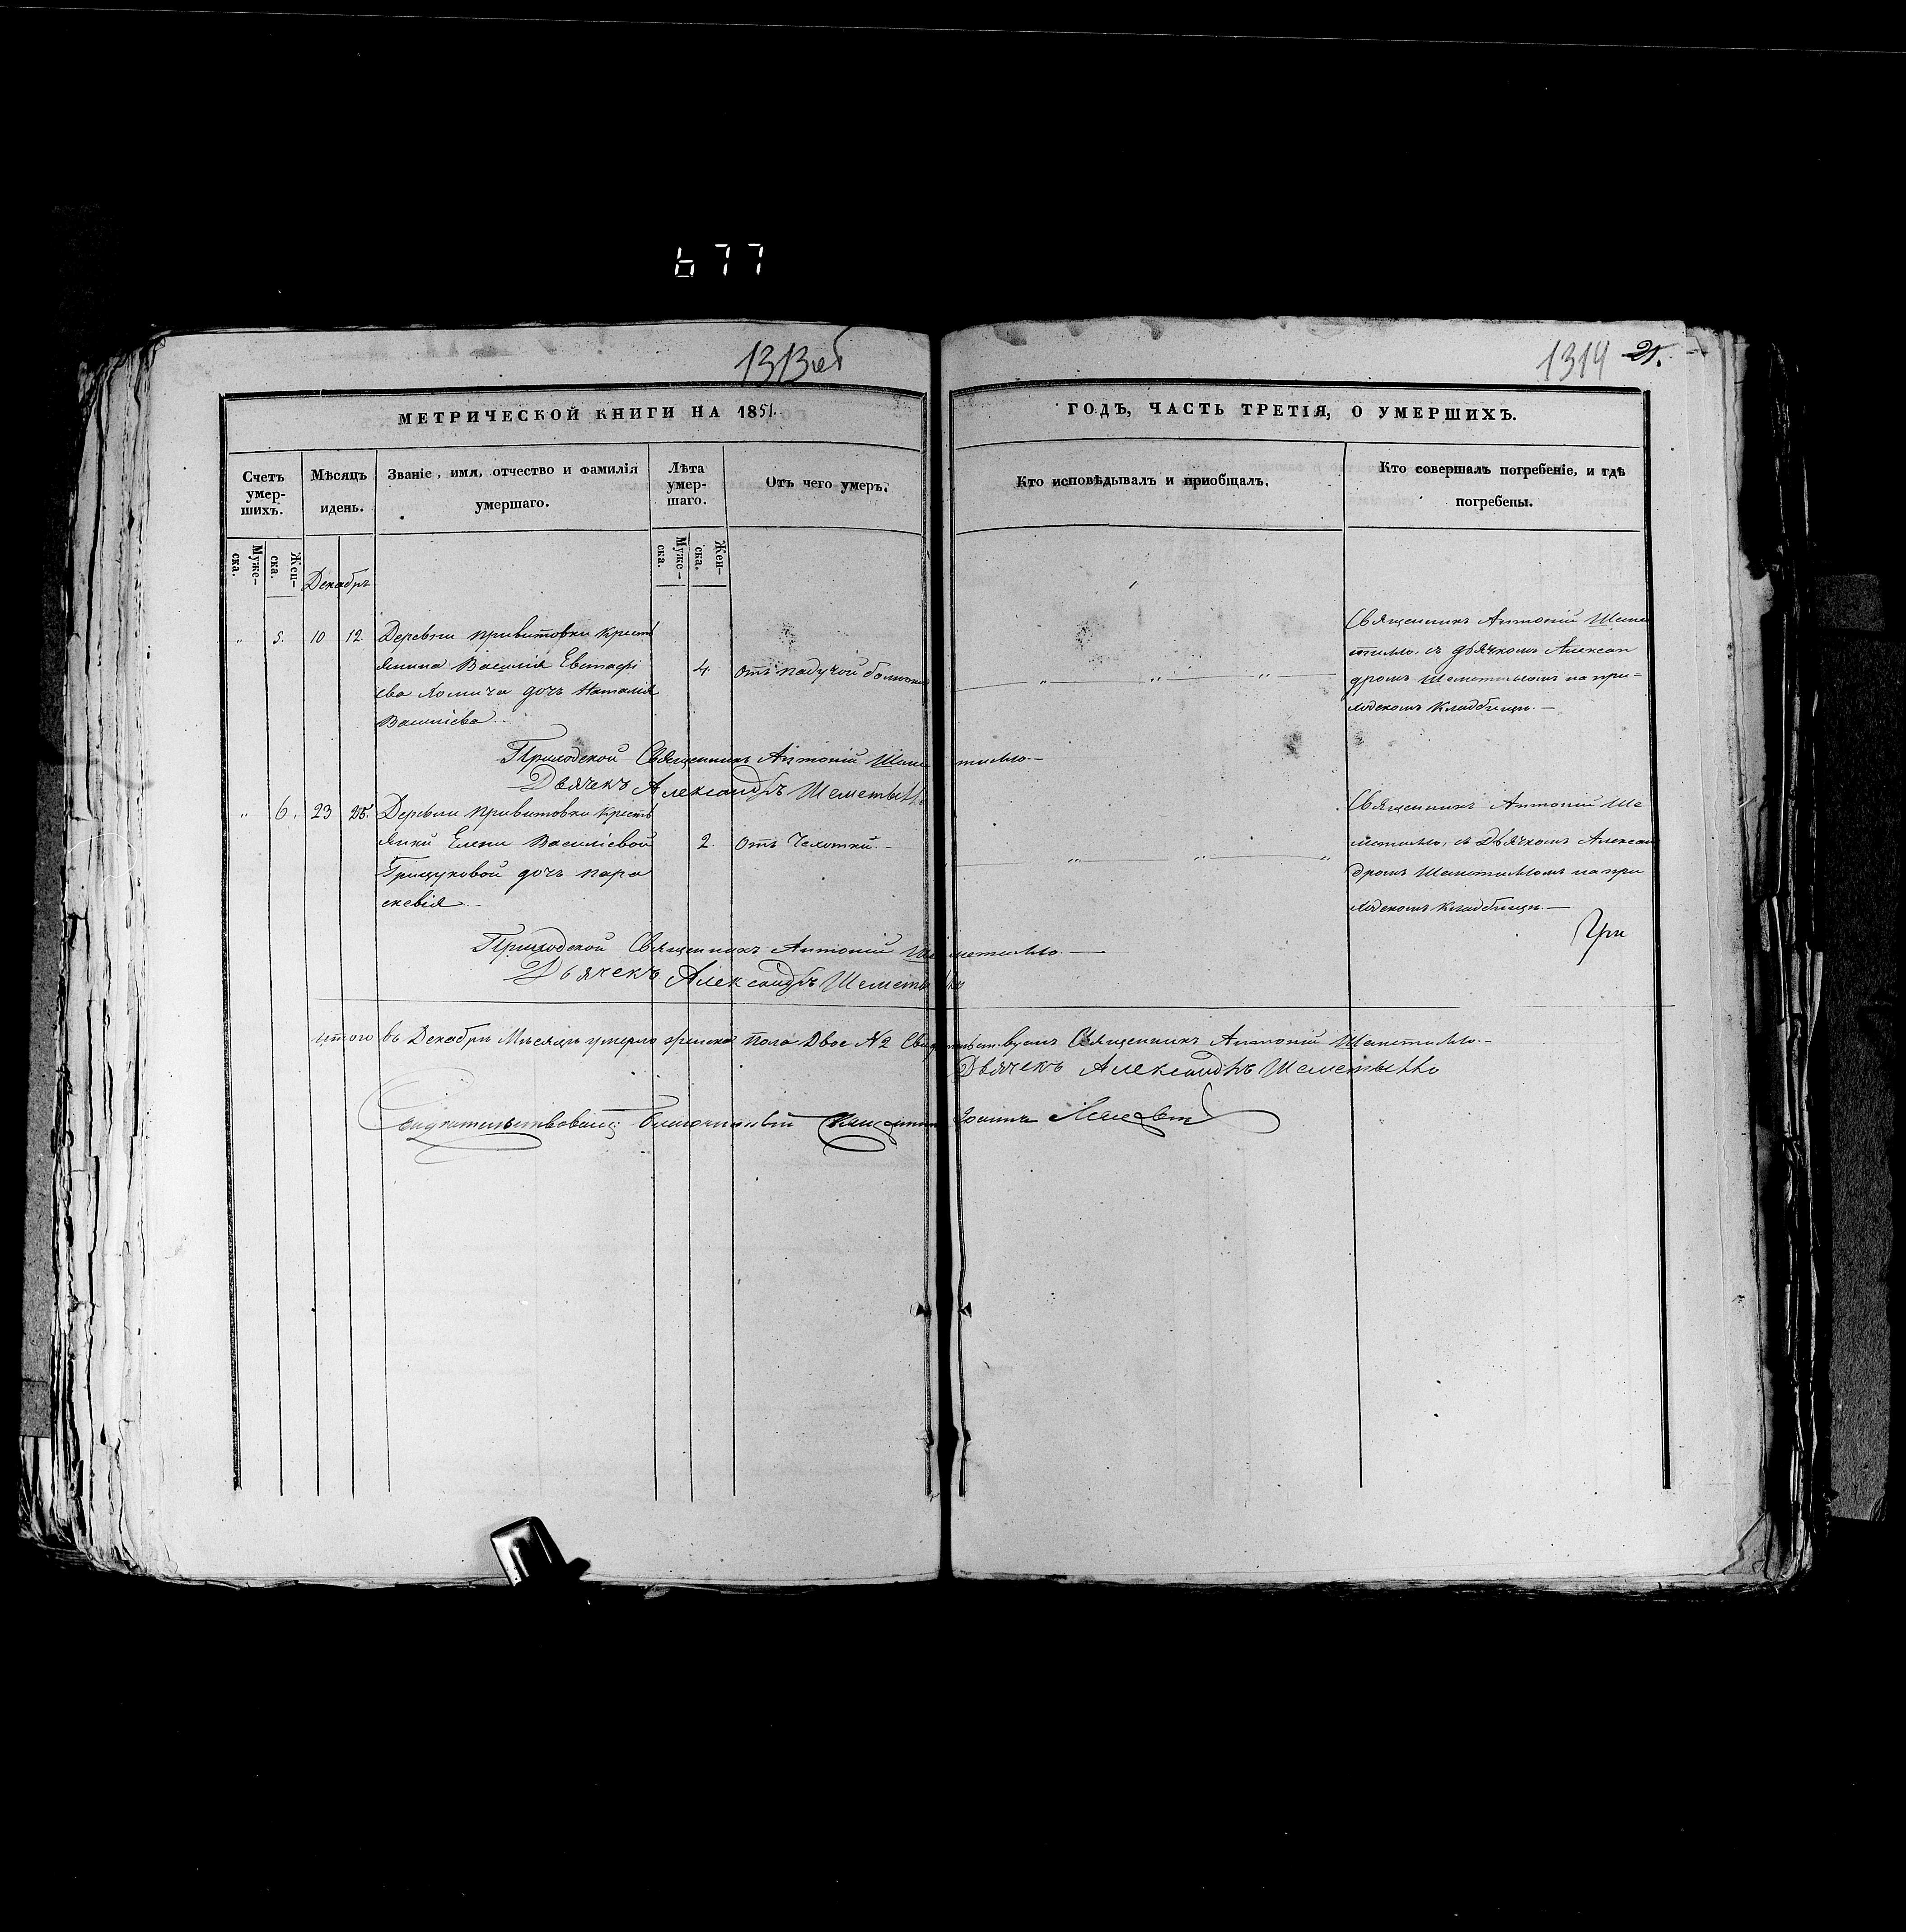 677
1313об
1314 21.
МЕТРИЧЕСКОЙ КНИГИ НА 1851.
ГОДЪ, ЧАСТЬ ТРЕТІЯ, О УМЕРШИХЪ.
Счетъ умер-шихъ.
Мѣсяцъ идень.
Званіе, имя, отчество и фамилія умершаго.
Лѣта умер-шаго.
Отъ чего умеръ.
Кто исповѣдывалъ и приобщалъ.
Кто совершалъ погребеніе, и гдѣ погребены.
Муже-ска.
Жен-ска.
Муже-ска.
Жен-ска.
Декабрь
" 5. 10 12. Деревни Привитовки крестъ
янина Василія Евстафі
ева Хомича дочь Наталія
Василіева
4.
отъ падучой болѣзни
" " "
Священникъ Антоній Шеме
тилло, съ дьячкомъ Алексан
дромъ Шеметилломъ на при-
ходскомъ кладбищѣ. —
Приходской Священникъ Антоній Шеметилло. —
Дьячекъ Александръ Шеметилло
" 6. 23 25. Деревни Привитовки крестъ
янки Елены Василіевой
Грицуковой дочь Пара
скевія
2.
отъ Чехотки. —
" " "
Священникъ Антоній Ше
метилло, съ Дьячкомъ Алексан
дромъ Шеметилломъ на при
ходскомъ кладбищѣ. —
При
Приходской Священникъ Антоній Шеметилло. —
Дьячекъ Александръ Шеметилло
итого въ Декабрѣ Мѣсяцѣ умерло женска пола Двое №2 Свидѣтельствуемъ Священникъ Антоній Шеметилло. —
Дьячекъ Александръ Шеметилло
Свидѣтельствовалъ Благочинный Священникъ Іоаннъ